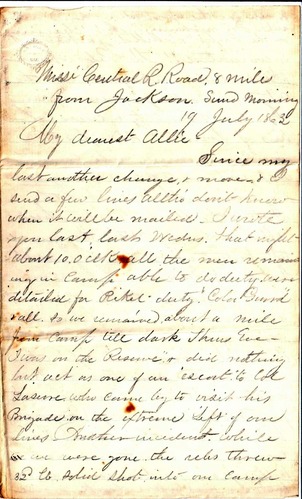 Missi Central R. Road, 8 mile
from Jackson. Sund Morning
19 July 1863
My dearest Allie
Since my
last another change, & move, & I
send a few lines altho' dont know
when it will be mailed. I wrote
you last, last Wednes. that night
about 10 O.clk all the men remain
ing in Camp able to do duty, were
detailed for Picket duty. Color Guard
& all. So we remained about a mile
from Camp till dark Thurs Eve
Was on the Reserve & did nothing
but act as one of an escort to Col
who came by to visit his
Brigade on the extreme left of our
Lines Another incident. While
we were gone the rebs threw
32 lb. solid shot into our Camp